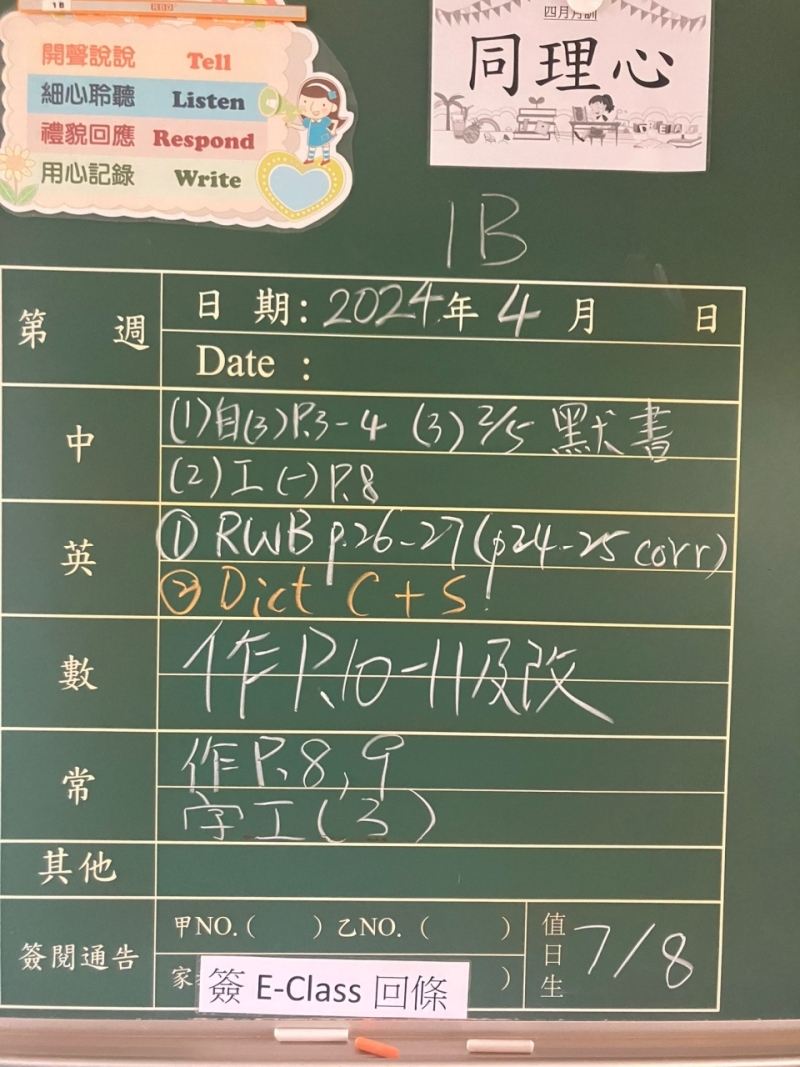 1B
RED
開聲說說 Tell
細心聆聽 Listen
禮貌回應 Respond
用心記錄 Write
四月月訓
同理心
1B
第 週
日 期: 2024年 4月 日
Date :
中
(1)自(3)P.3-4 (3) 2/5 默書
(2)工(一)P.8
英
① RWB p.26-27 (p24-25 corr)
② Dict C + S!
數
作P.10-11及改
常
作P.8, 9
字工(3)
其他
簽閱通告
甲NO.( ) 乙NO. ( )
家 )
簽 E-Class 回條
值日生
7/8